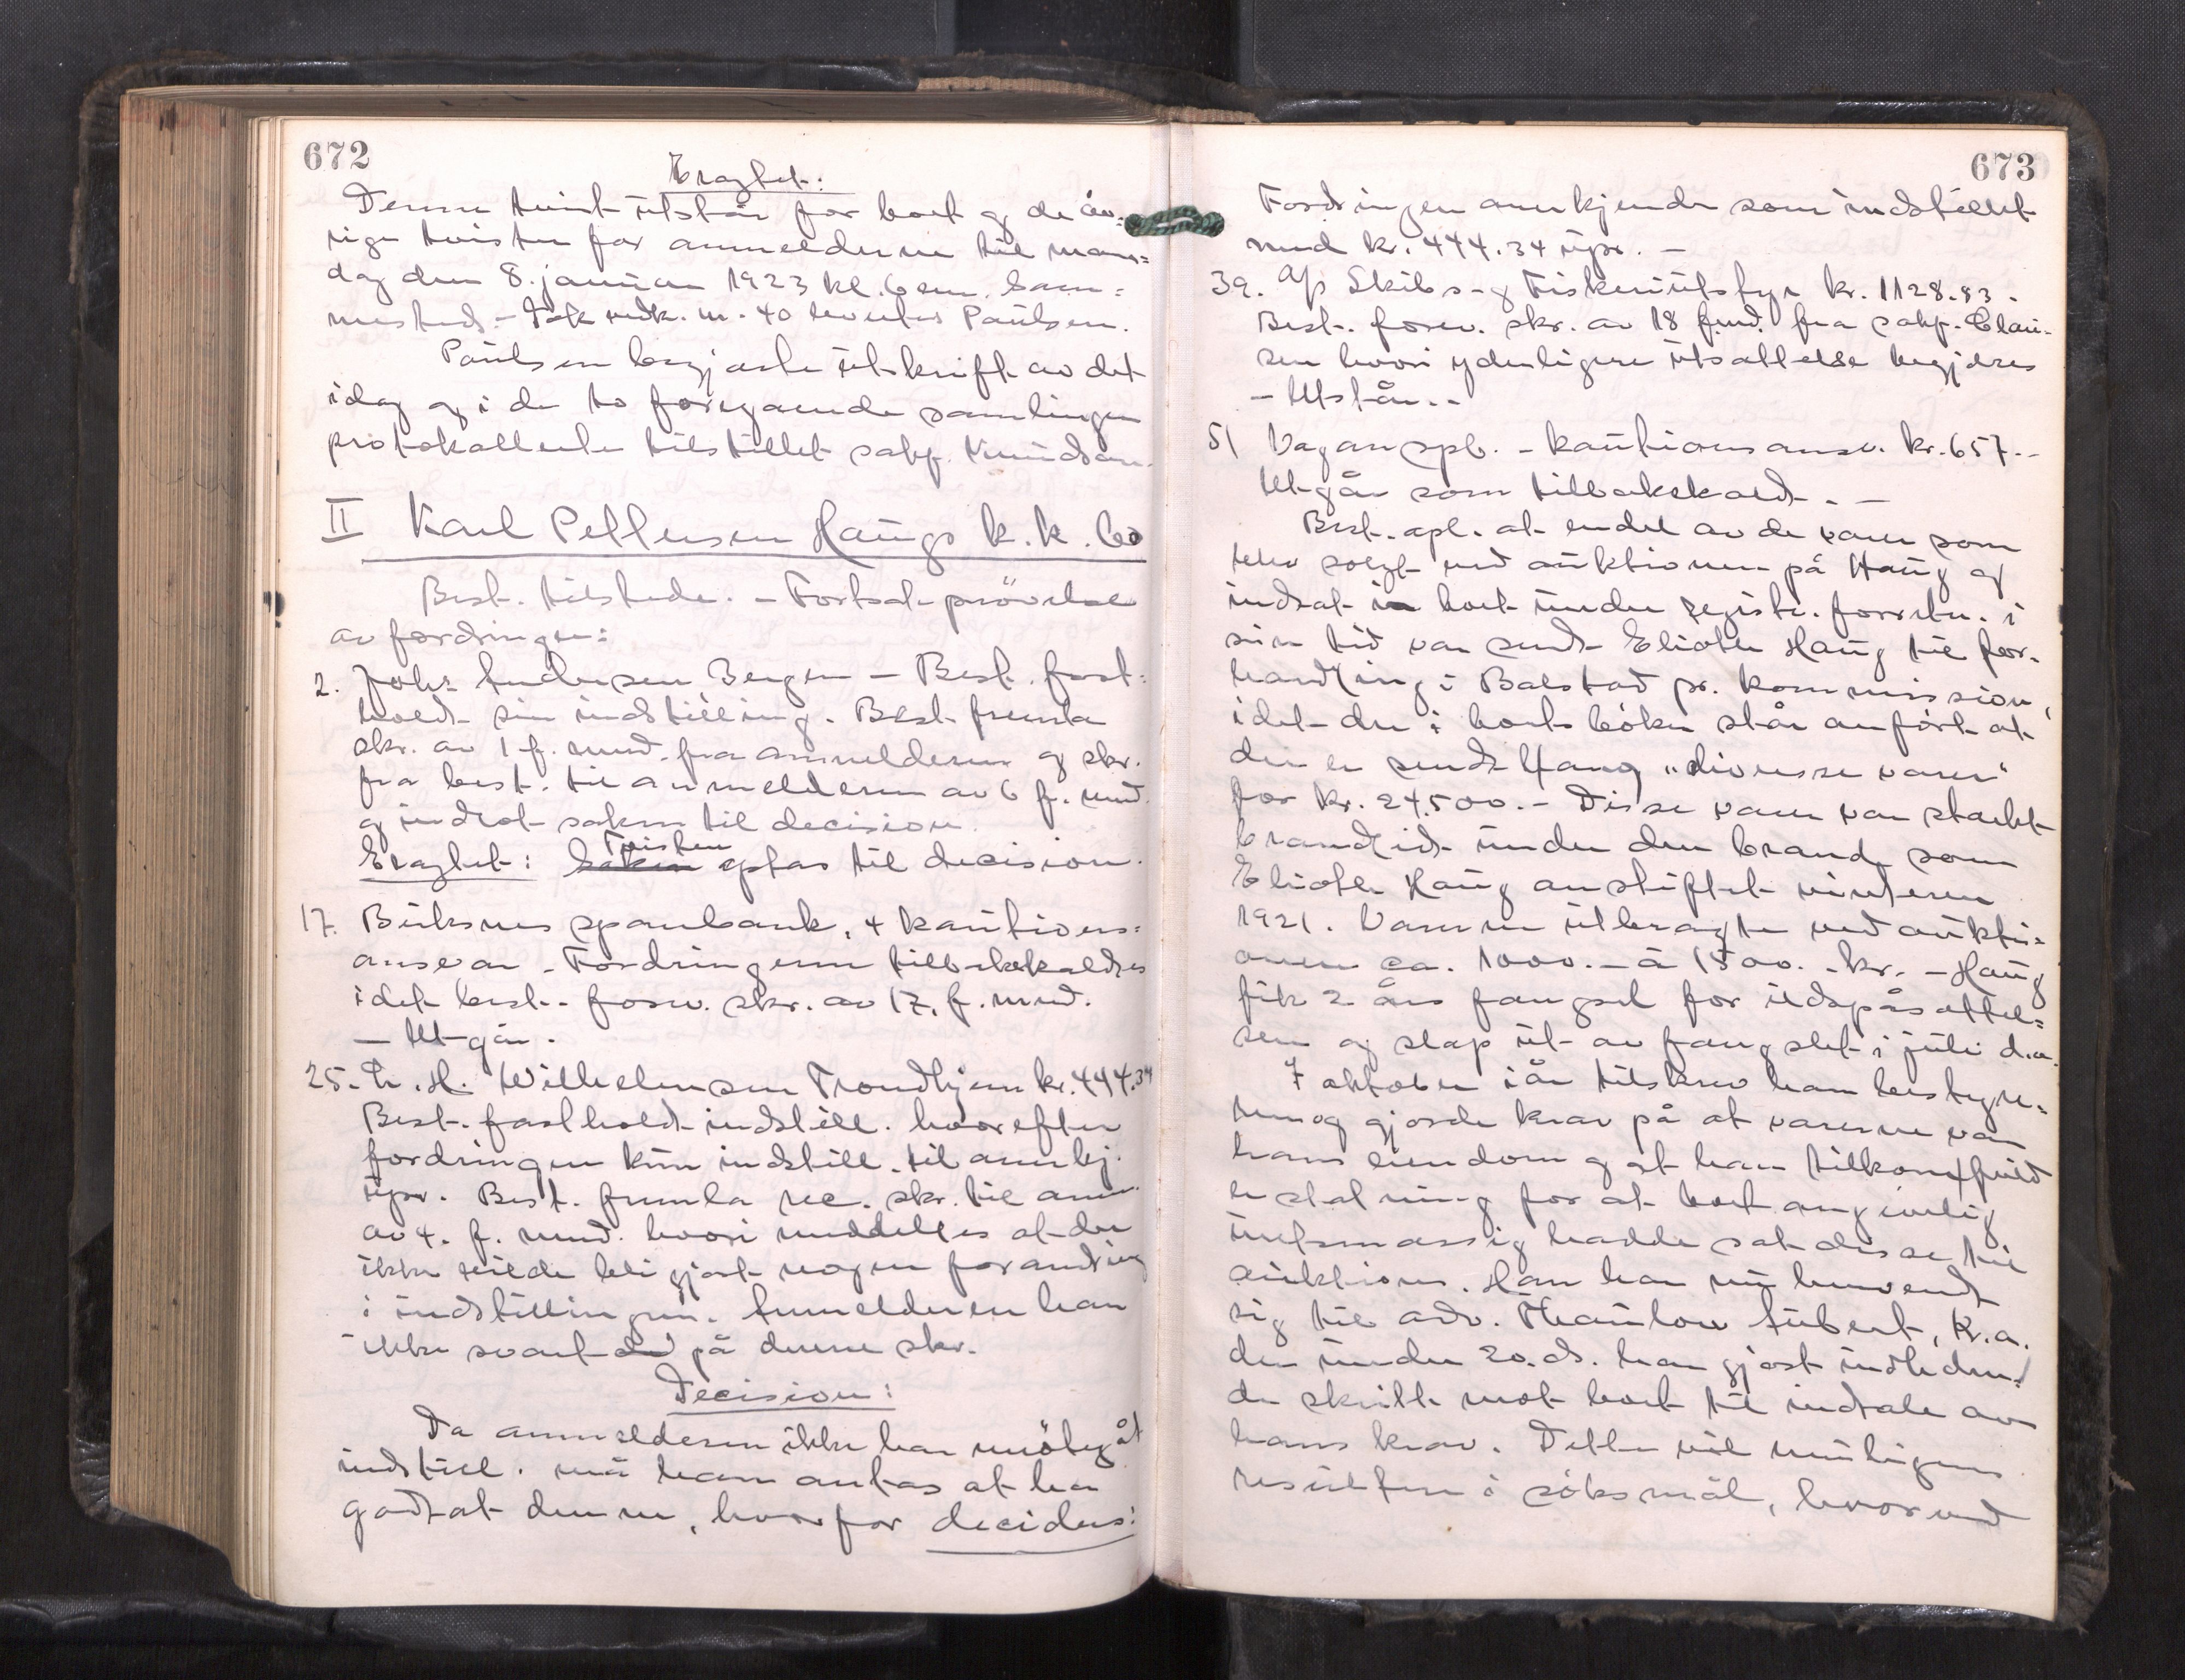 672
Eragtet:
Denne tvist utstår for boet og de øv-
rige tvister for anmelderne til man=
dag den 8. januar 1923 kl. 6 em. Sam=
mesteds. - Dok vedk. nr. 40 levertes Paulsen.
Paulsen begjærte utskrift av det
idag og i de to foregaaende samlinger
protokollerte tilstillet sakf. Knudsen.
II Karl Pettersen Haugs k. k. bo
Best. tilstede. - Fortsat prövelse
av fordringer:
2. Johs Andersen Bergen - Best. fast-
holdt sin indstilling. Best fremla
skr. av 1 f. mnd. fra anmelderen og skr.
fra best. til anmelderen av 6 f. mnd.
og indlot saken til decision.
Tvisten
Eragtet: Saken optas til decision.
17. Buksnes sparebank, 4 kautions=
ansvar - Fordringerne tilbakekaldtes
idet best. forev. skr. av 17. f. mnd.
- Utgår.
25. Th. H. Wilhelmsen Trondhjem kr. 444.34
Best. fastholdt indstill. hvorefter
fordringen kun indstill. til anerkj.
upr. Best. fremla rec. skr. til anm.
av 4. f. mnd. hvori meddeltes at der
ikke vilde bli gjort nogen forandring
i indstillingen. Anmelderen har
ikke svart på denne skr.
Decision:
Da anmelderen ikke har imötegåt
indstill. må han antas at ha
godtat denne, hvorfor decideres:
673
Fordringen anerkjendes som indstillet
med kr. 444.34 upr. -
39. A/s Skibs- og Fiskeriutstyr kr. 1128.83.
Best. forev. skr. av 18 f. md. fra sakf. Clau-
sen hvori yderligere utsættelse begjæres
- Utstår. -
51 Vagan spb. - kautionsansv. kr. 657.-
Utgår som tilbakekaldt. -
Best. opl. at endel av de varer som
blev solgt ved auktionen på Haug og
indsat i boet under registr. forretn. i
sin tid var sendt Eliotte Haug til for-
handling i Balstad pr. kommission,
idet der i boets böker står anfört at
der er sendt Haug "diverse varer"
for kr. 24.500.- Disse varer var stærkt
brandlidt under den brand som
Eliotte Haug anstiftet vinteren
1921. Varerne utbragte ved aukti=
onen ca. 1000.- à 1500.- kr. - Haug
fik 2 års fængsel for ildspåsættel=
sen og slap ut av fængslet i juli d.a.
7 oktober i år tilskrev han bestyre=
ren og gjorde krav på at varerne var
hans eiendom og at han tilkom fuld
erstatning for at boet angivelig
uretmæssig hadde sat disse til
auktion. Han har nu henvendt
sig til adv. Thaulow Aubert, Kr.a.
der under 20. ds. har gjort indleden=
de skritt mot boet til indtale av
hans krav. Dette vil muligens
resultere i söksmål, hvorved